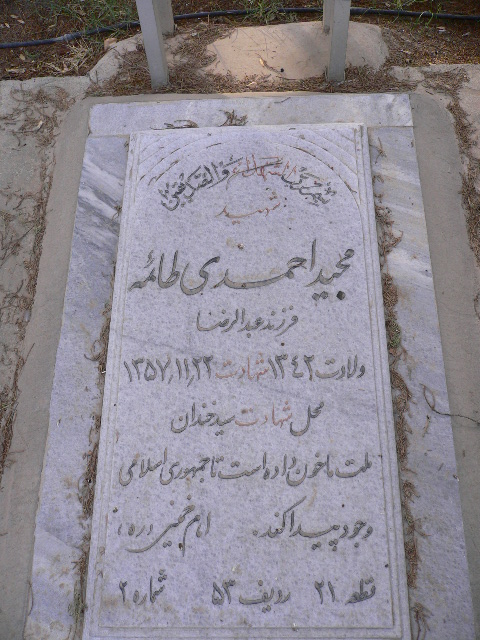 شهید
مجید احمدی طائمه
فرزند عبدالرضا
ولادت ۱۳۴۲ شهادت ۱۳۵۷٫۱۱٫۲۲
محل شهادت سیدخندان
ملت ما خون داده است تا جمهوری اسلامی
وجود پیدا کند. امام خمینی «ره»
قطعه ۲۱ ردیف ۵۳ شماره ۲